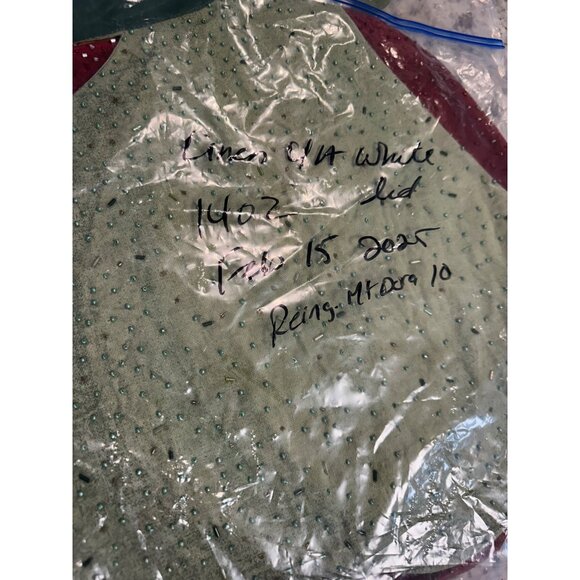 Linen C/A White
14oz lid
Feb 15 2025
Reing. Mt Dora 10